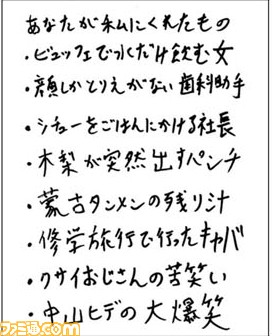 あなたが私にくれたもの
・ビュッフェで水だけ飲む女
・顔しかとりえがない歯科助手
・シチューをごはんにかける社長
・木梨が突然出すパンチ
・蒙古タンメンの残り汁
・修学旅行で行ったキャバ
・クサイおじさんの苦笑い
・中山ヒデの大爆笑
ファミ通.com